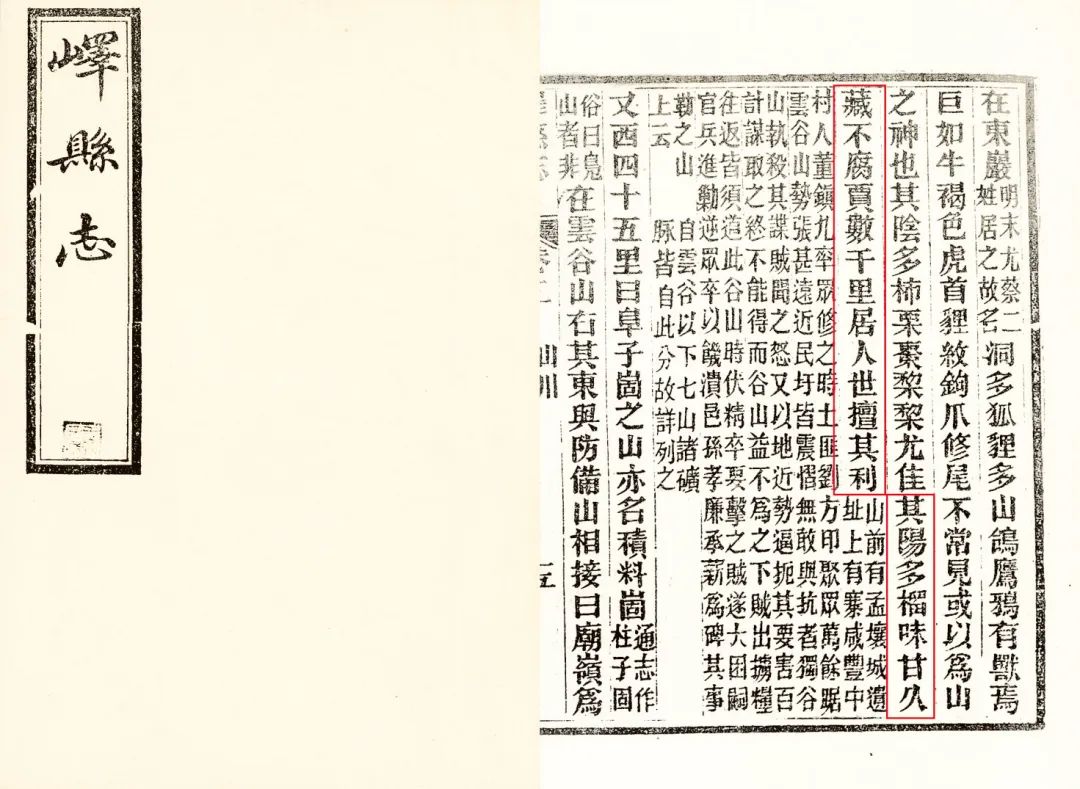 嶧縣志
在東巖明末尤蔡二姓居之故名洞多狐貍多山鴿鷹鴉有獸焉
巨如牛褐色虎首貍紋鉤爪修尾不常見或以爲山
之神也其陰多柿栗棗棃棃尤佳其陽多榴味甘久
藏不腐賈數千里居人世擅其利山前有孟壤城遺址上有寨咸豐中
村人董鎮九率眾修之時土匪劉方印聚眾萬餘踞
雲谷山勢張甚遠近民圩皆震慴無敢與抗者獨谷
山執殺其諜賊聞之怒又以地近勢逼扼其要害百
計謀取之終不能得而谷山益不爲之下賊出擄糧
往返皆須道此谷山時伏精卒要擊之賊遂大困嗣
官兵進勦逆眾卒以饑潰邑孫孝廉承薪爲碑其事
勒之山上云
自雲谷以下七山諸礦
脉皆自此分故詳列之
又西四十五里曰阜子崮之山亦名積料崮通志作柱子固
俗曰鳧山者非在雲谷山右其東與防備山相接曰廟嶺爲